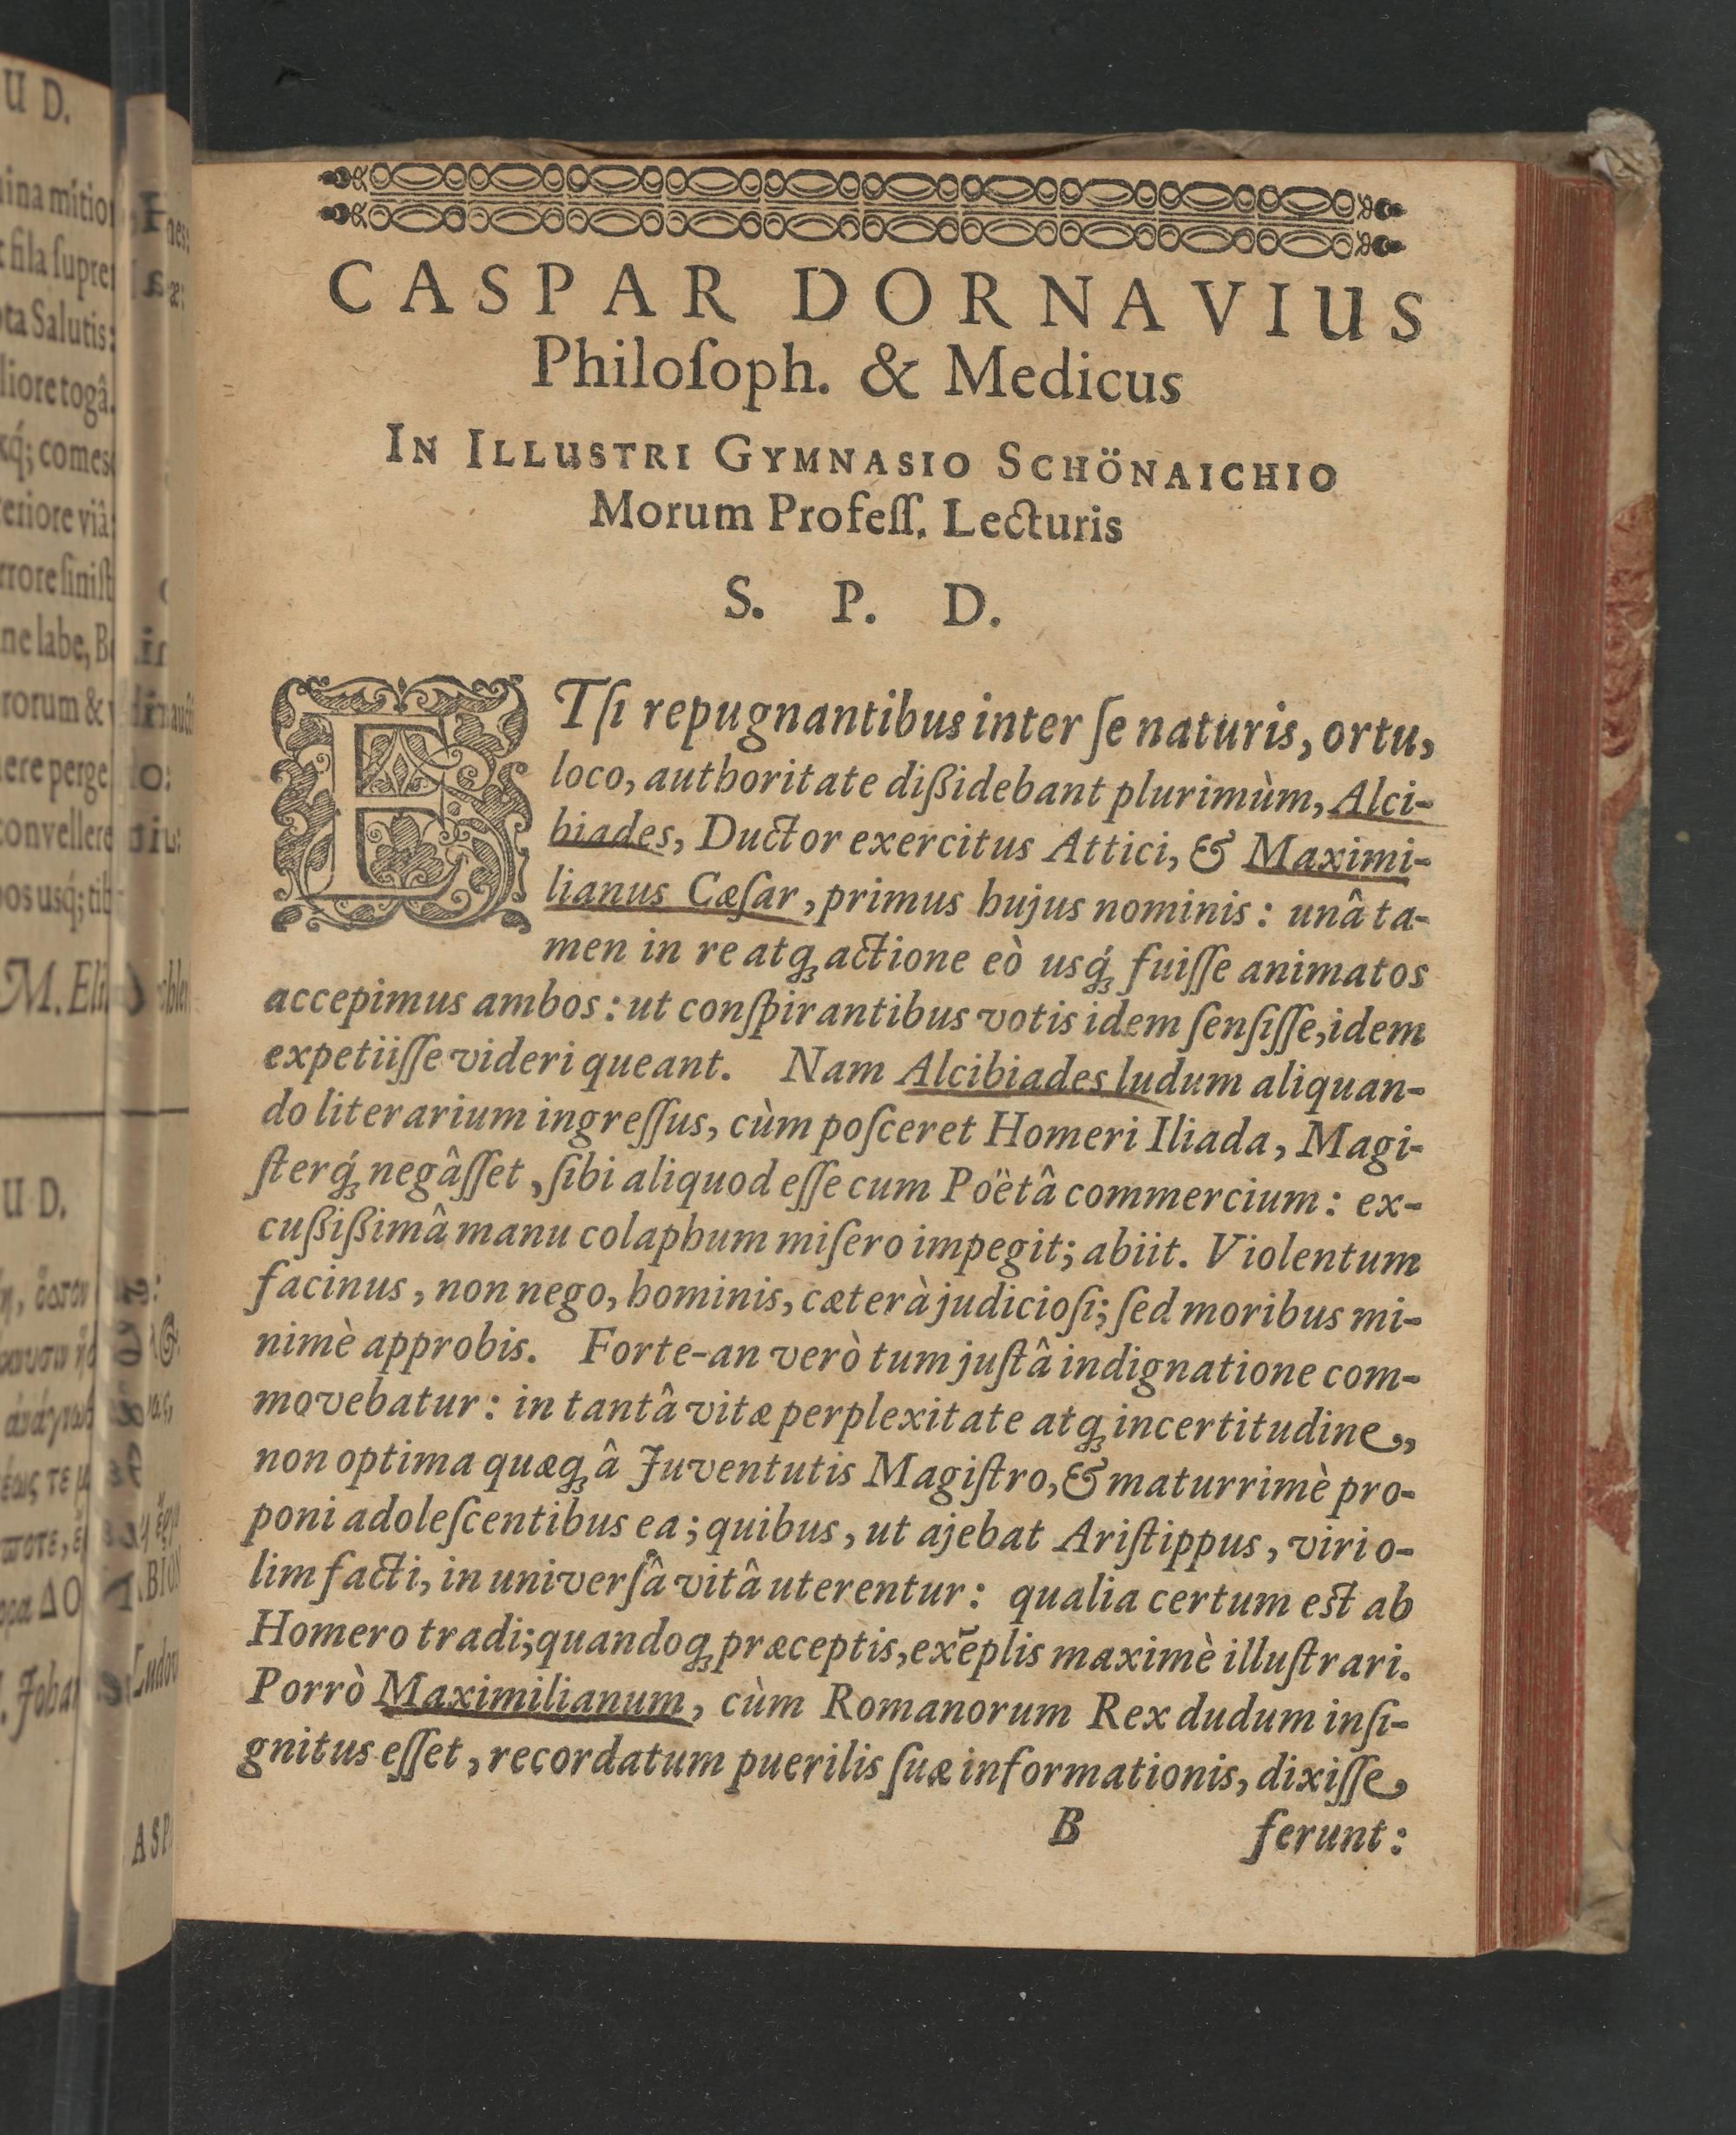 CASPAR DORNAVIUS
Philoſoph. & Medicus
IN ILLUSTRI GYMNASIO SCHÖNAICHIO
Morum Profeſſ. Lecturis
S. P. D.
ETſi repugnantibus inter ſe naturis, ortu,
loco, authoritate dißidebant plurimùm, Alci-
biades, Ductor exercitus Attici, & Maximi-
lianus Cæſar, primus hujus nominis: unâ ta-
men in re atq́ꝫ actione eò usq́ꝫ fuiſſe animatos
accepimus ambos: ut conſpirantibus votis idem ſenſiſſe, idem
expetiiſſe videri queant. Nam Alcibiades ludum aliquan-
do literarium ingreſſus, cùm poſceret Homeri Iliada, Magi-
ſterq́ꝫ negâſſet, ſibi aliquod eſſe cum Poëtâ commercium: ex-
cußißimâ manu colaphum miſero impegit; abiit. Violentum
facinus, non nego, hominis, cæterà judicioſi; ſed moribus mi-
nimè approbis. Forte-an verò tum juſtâ indignatione com-
movebatur: in tantâ vitæ perplexitate atqꝫ incertitudine,
non optima quæqꝫ â Juventutis Magiſtro, & maturrimè pro-
poni adoleſcentibus ea; quibus, ut ajebat Ariſtippus, viri o-
lim facti, in univerſâ vitâ uterentur: qualia certum eſt ab
Homero tradi; quandoqꝫ præceptis, exẽplis maximè illuſtrari.
Porrò Maximilianum, cùm Romanorum Rex dudum inſi-
gnitus eſſet, recordatum puerilis ſuæ informationis, dixiſſe,
B ferunt: